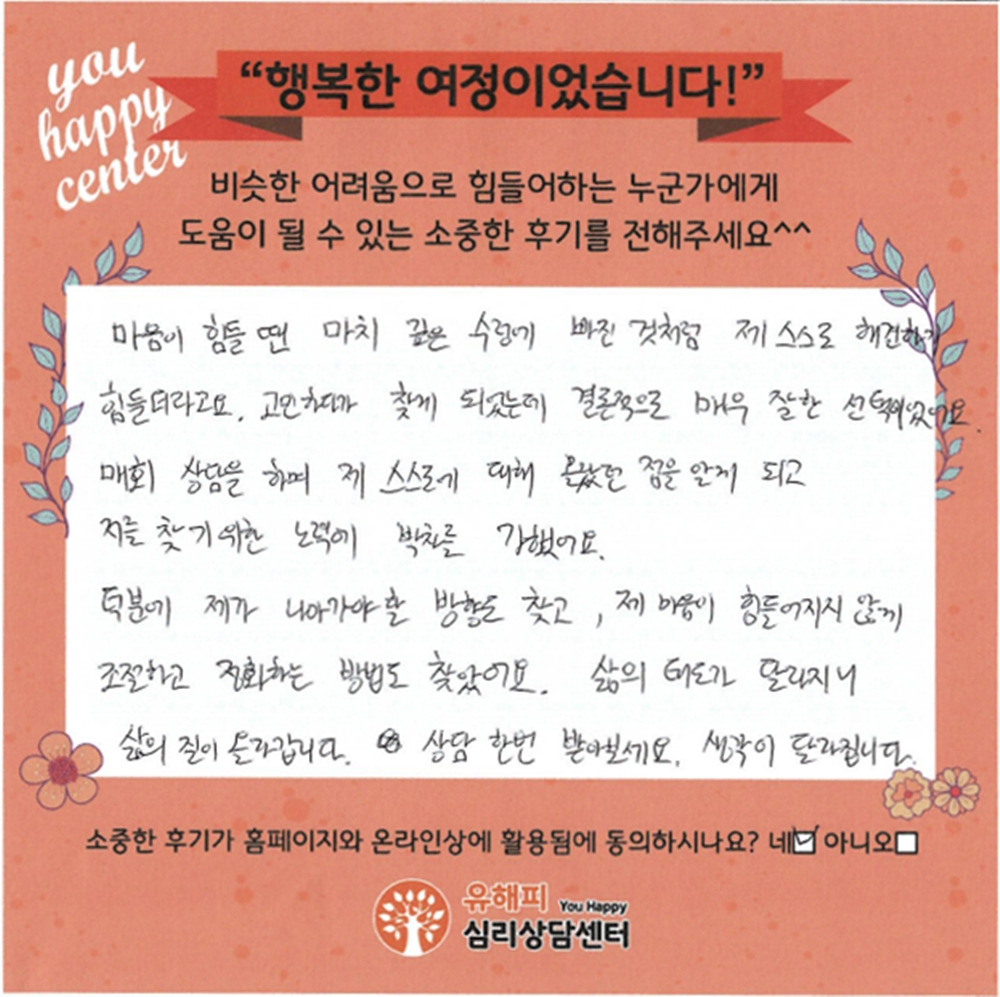 you
happy
center
“행복한 여정이었습니다!”
비슷한 어려움으로 힘들어하는 누군가에게
도움이 될 수 있는 소중한 후기를 전해주세요^^
마음이 힘들 땐 마치 깊은 수렁에 빠진 것처럼 제 스스로 해결하기
힘들더라고요. 고민하다가 찾게 되었는데 결론적으로 매우 잘한 선택이었어요.
매회 상담을 하며 제 스스로에 대해 몰랐던 점을 알게 되고
저를 찾기 위한 노력에 박차를 가했어요.
덕분에 제가 나아가야 할 방향도 찾고, 제 마음이 힘들어지지 않게
조절하고 정화하는 방법도 찾았어요. 삶의 태도가 달라지니
삶의 질이 올라갑니다. 상담 한번 받아보세요. 생각이 달라집니다.
소중한 후기가 홈페이지와 온라인상에 활용됨에 동의하시나요? 네☑ 아니오☐
유해피 You Happy
심리상담센터